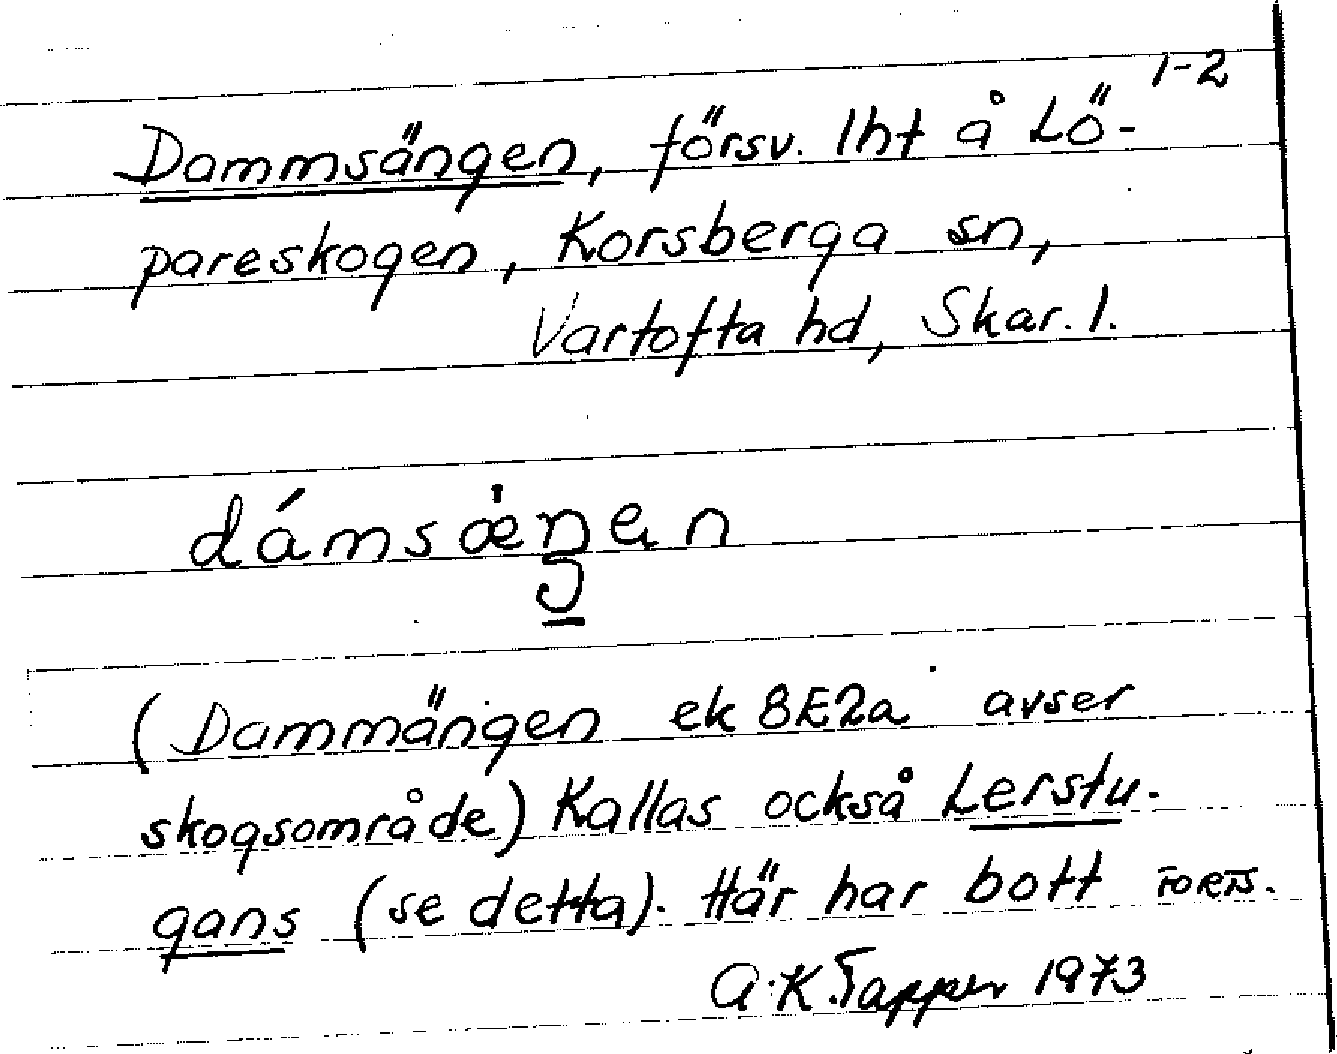 1-2
Dammsängen, försv. lht å Lö-
pareskogen, Korsberga sn,
Vartofta hd, Skar. l.
dámsæ̀ŋen
(Dammängen ek 8E2a avser
skogsområde) Kallas också Lerstu-
gans (se detta). Här har bott FORTS.
A.K. Tapper 1973